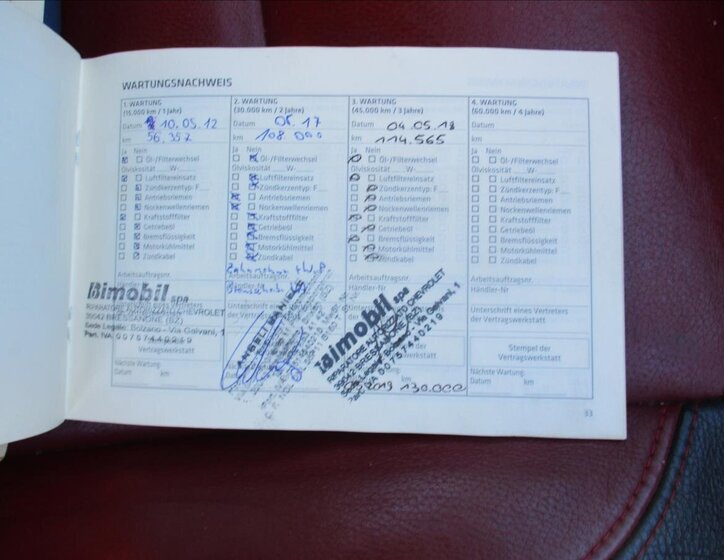 WARTUNGSNACHWEIS
1. WARTUNG
(15.000 km / 1 Jahr)
Datum 10.05.12
km 56.357
Ja Nein
Öl-/Filterwechsel
Ölviskosität W-
Luftfiltereinsatz
Zündkerzentyp: F
Antriebsriemen
Nockenwellenriemen
Kraftstofffilter
Getriebeöl
Bremsflüssigkeit
Motorkühlmittel
Zündkabel
Arbeitsauftragsnr.
Bimobil spa
RIPARATORE AUTORIZZATO CHEVROLET
39042 BRESSANONE (BZ)
Sede Legale: Bolzano - Via Galvani, 1
Part. IVA: 00757440219
Vertragswerkstatt
Nächste Wartung:
Datum km
2. WARTUNG
(30.000 km / 2 Jahre)
Datum 05.17
km 108.000
Ja Nein
Öl-/Filterwechsel
Ölviskosität W-
Luftfiltereinsatz
Zündkerzentyp: F
Antriebsriemen
Nockenwellenriemen
Kraftstofffilter
Getriebeöl
Bremsflüssigkeit
Motorkühlmittel
Zündkabel
Arbeitsauftragsnr.
Händler-Nr
Unterschrift eines Vertreters
3. WARTUNG
(45.000 km / 3 Jahre)
Datum 04.05.18
km 114.565
Ja Nein
Öl-/Filterwechsel
Ölviskosität W-
Luftfiltereinsatz
Zündkerzentyp: F
Antriebsriemen
Nockenwellenriemen
Kraftstofffilter
Getriebeöl
Bremsflüssigkeit
Motorkühlmittel
Zündkabel
Arbeitsauftragsnr.
Händler-Nr
Bimobil spa
RIPARATORE AUTORIZZATO CHEVROLET
39042 BRESSANONE (BZ)
Sede Legale: Bolzano - Via Galvani, 1
Part. IVA: 00757440219
2019 130.000
4. WARTUNG
(60.000 km / 4 Jahre)
Datum
km
Ja Nein
Öl-/Filterwechsel
Ölviskosität W-
Luftfiltereinsatz
Zündkerzentyp: F
Antriebsriemen
Nockenwellenriemen
Kraftstofffilter
Getriebeöl
Bremsflüssigkeit
Motorkühlmittel
Zündkabel
Arbeitsauftragsnr.
Händler-Nr
Unterschrift eines Vertreters
der Vertragswerkstatt
Stempel der
Vertragswerkstatt
Nächste Wartung:
Datum km
33